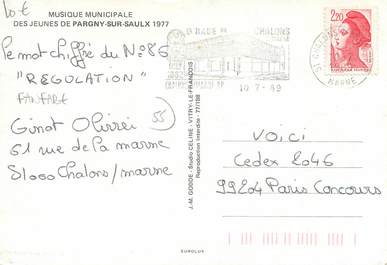 10€
MUSIQUE MUNICIPALE
DES JEUNES DE PARGNY-SUR-SAULX 1977
Le mot chiffré du N° 86
"REGULATION"
FANFARE
55
61 rue de la marne
51000 Chalons/marne
J.-M. GODDE - Studio CELINE - VITRY-LE-FRANÇOIS
Reproduction Interdite - 777/188
CHALONS
10-7-89
51 CHALONS
MARNE
2,20
VOICI
Cedex 2046
99204 Paris Concours
EUROLUX